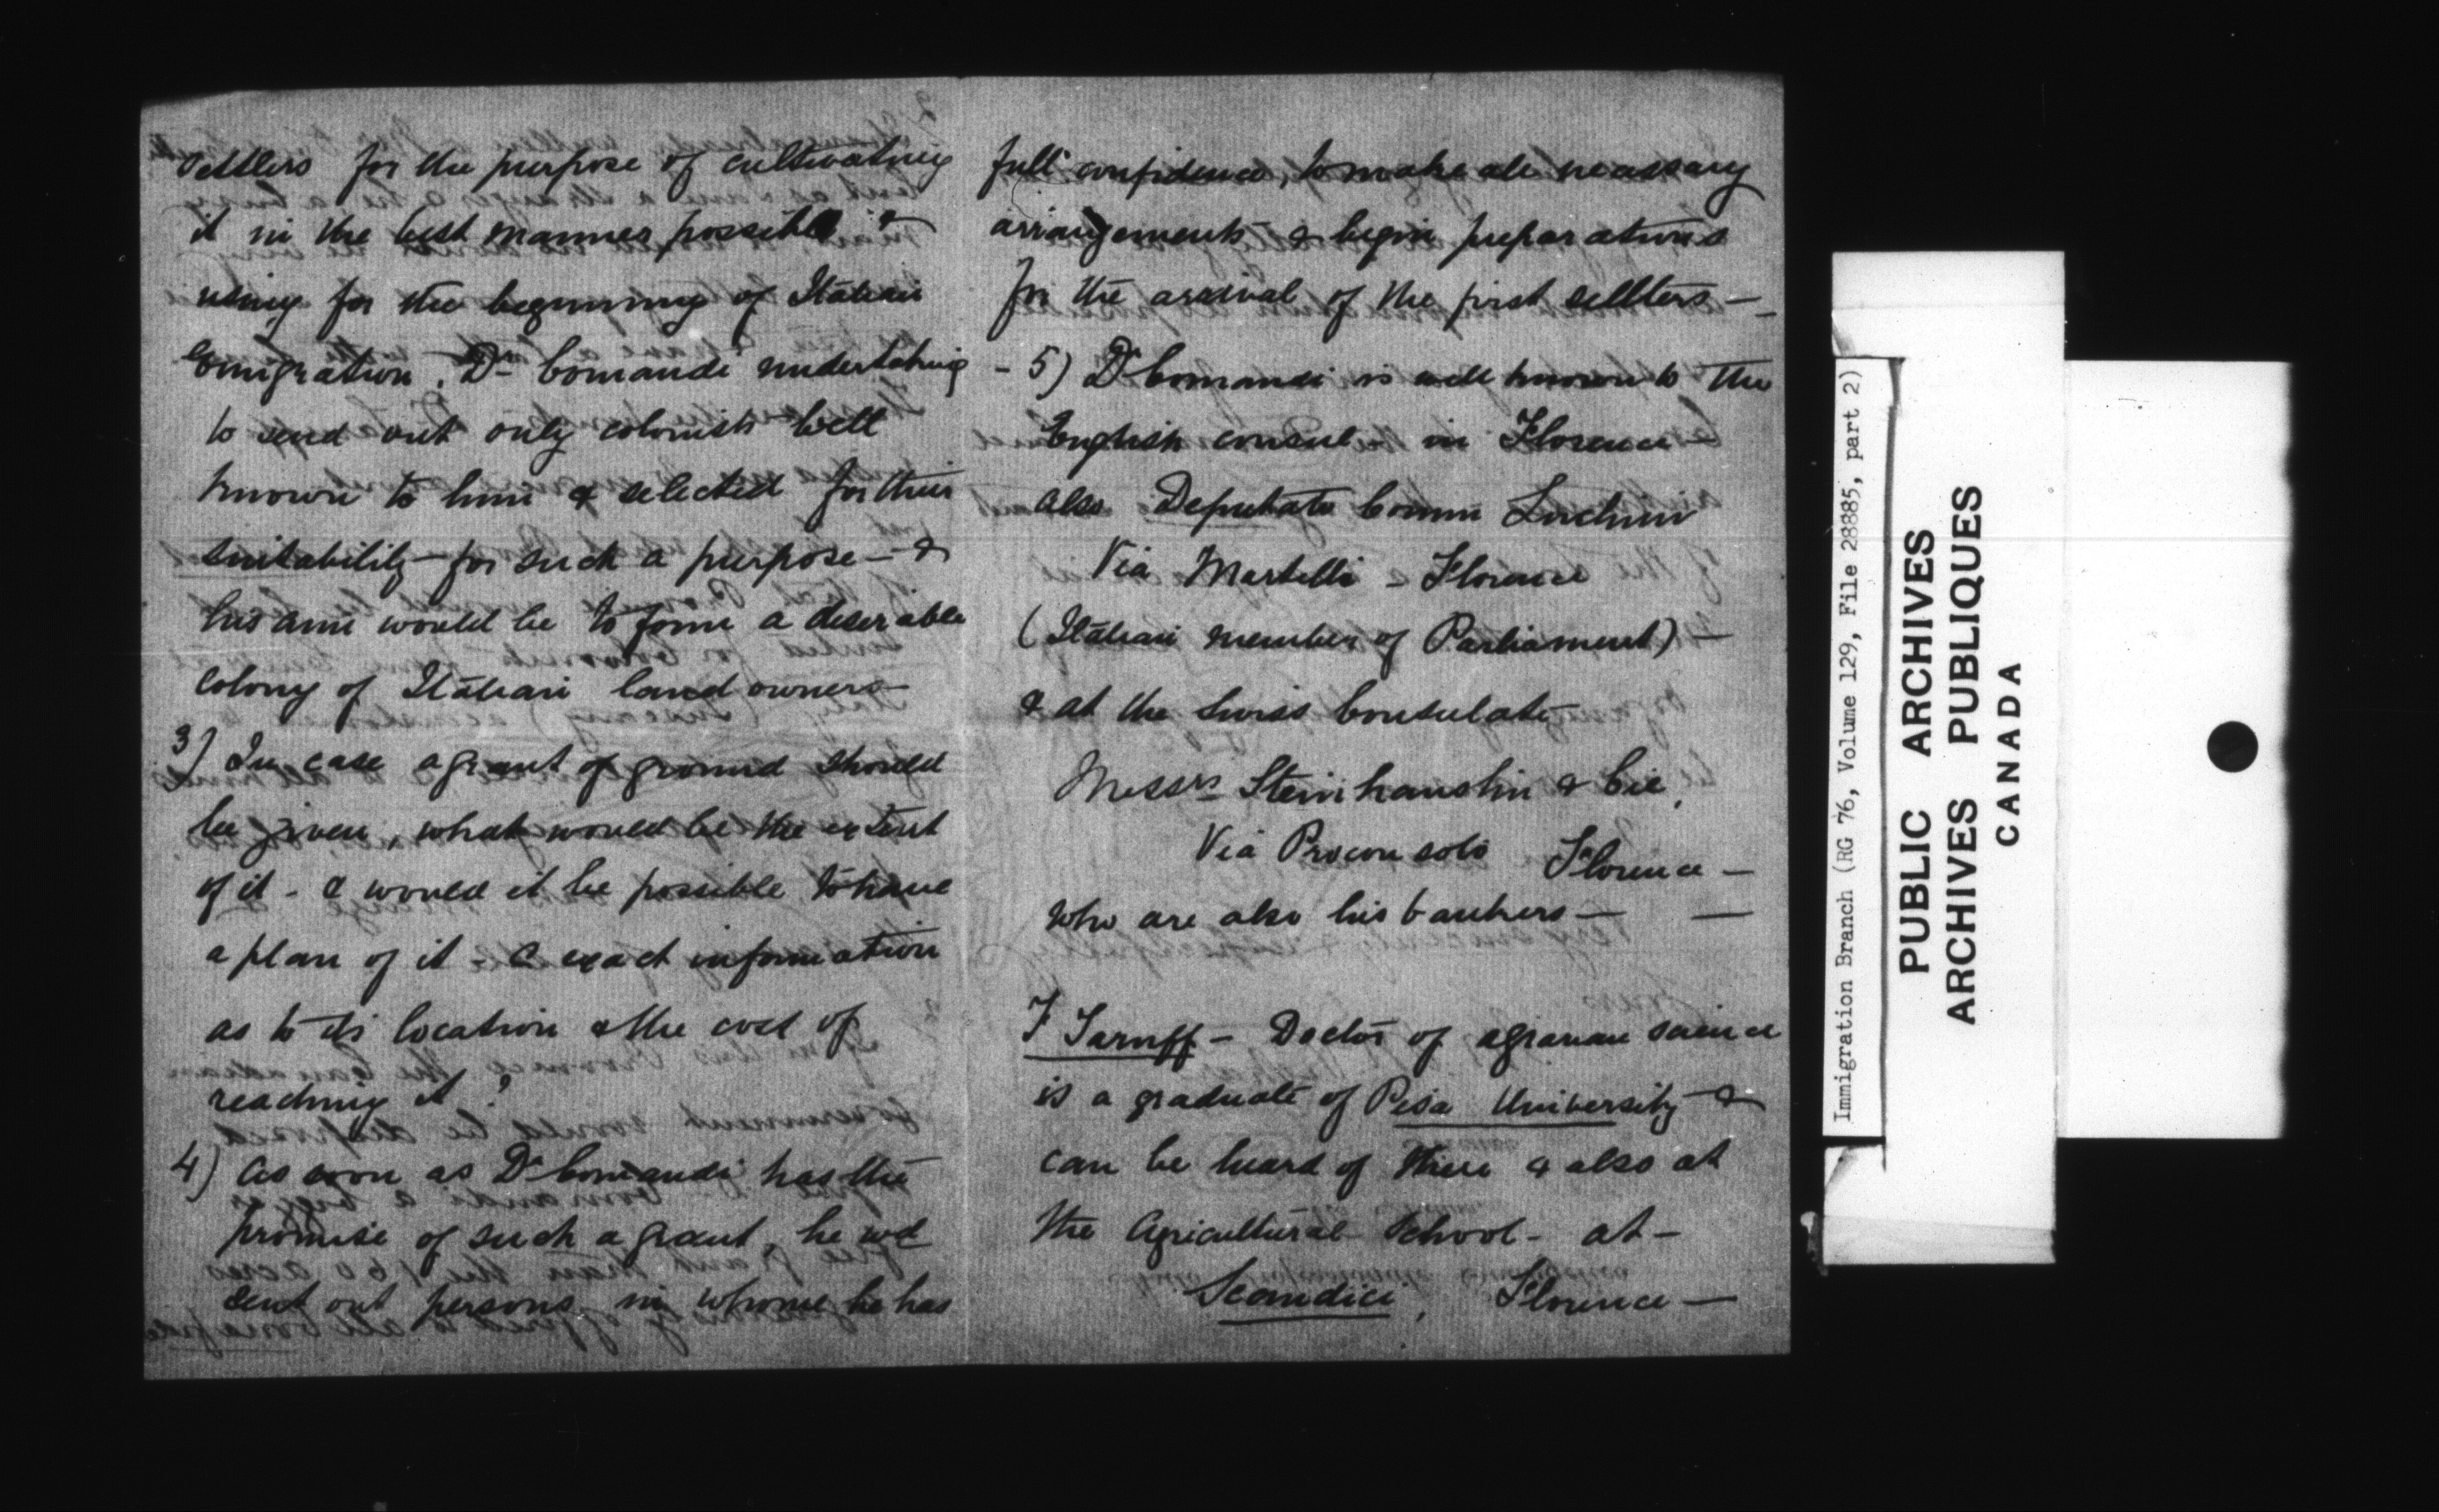 settlers for the purpose of cultivating
it in the best manner possible &
using for the beginning of Italian
Emigration. Dr Comandi undertaking
to send out only colonists well
known to him & selected for their
suitability for such a purpose - &
his aim would be to form a desirable
colony of Italian land owners -
3) In case a grant of ground should
be given, what would be the extent
of it - & would it be possible to have
a plan of it - & exact information
as to its location & the cost of
reaching it?
4) As soon as Dr Comandi has the
promise of such a grant, he wd
sent out persons, in whome he has
full confidence, to make all necessary
arrangements & begin preparations
for the arrival of the first settlers -
- 5) Dr Comandi is well known to the
English consul - in Florence -
also Deputato Comm Luchini
Via Martelli - Florence
(Italian member of Parliament) -
& at the Swiss Consulate
Messrs Steinhauslin & Cie,
Via Proconsolo Florence -
who are also his bankers -
F - Doctor of agrarian science
is a graduate of Pisa University &
can be heard of there & also at
the Agricultural School - at -
Scandicci, Florence -
Immigration Branch (RG 76, Volume 129, File 28885, part 2)
PUBLIC ARCHIVES
ARCHIVES PUBLIQUES
CANADA